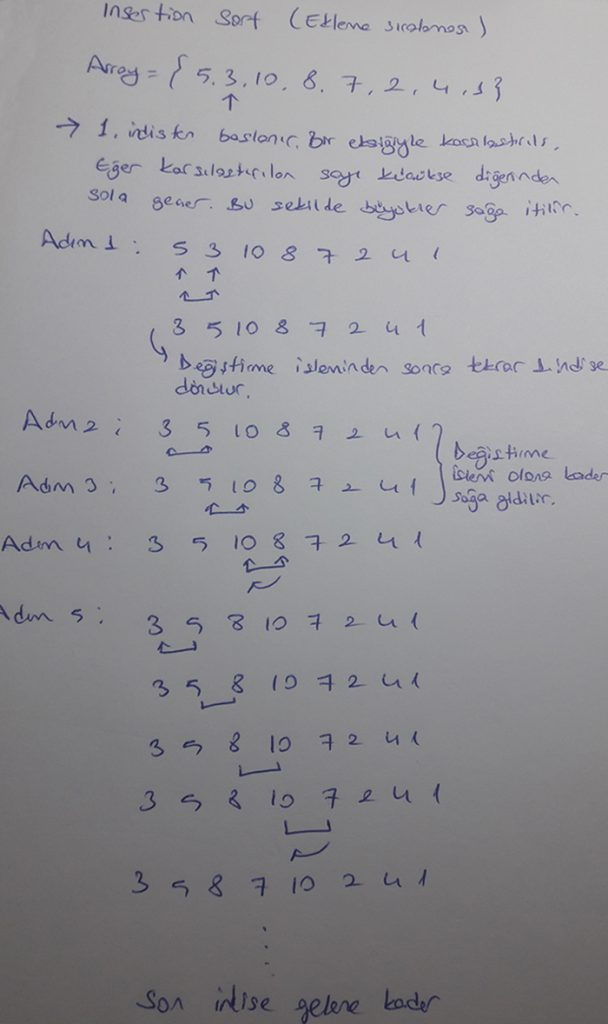 Insertion Sort (Ekleme sıralaması)
Array = { 5, 3, 10, 8, 7, 2, 4, 1 }
→ 1. indisten başlanır. Bir eksiğiyle karşılaştırılır.
Eğer karşılaştırılan sayı küçükse diğerinden
sola geçer. Bu şekilde büyükler sağa itilir.
Adım 1 : 5 3 10 8 7 2 4 1
3 5 10 8 7 2 4 1
Değiştirme işleminden sonra tekrar 1. indise
dönülür.
Adım 2 : 3 5 10 8 7 2 4 1
Adım 3 : 3 5 10 8 7 2 4 1
Değiştirme
işlemi olana kadar
sağa gidilir.
Adım 4 : 3 5 10 8 7 2 4 1
Adım 5 : 3 5 8 10 7 2 4 1
3 5 8 10 7 2 4 1
3 5 8 10 7 2 4 1
3 5 8 10 7 2 4 1
3 5 8 7 10 2 4 1
Son indise gelene kadar